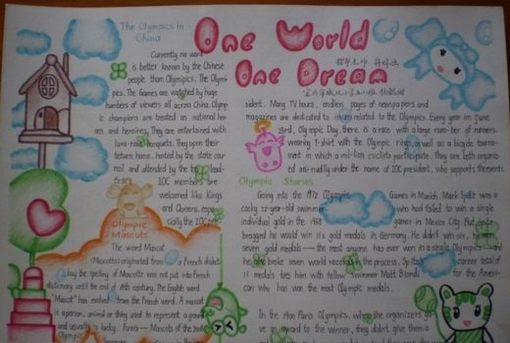 The Olympics in
China
One World
One Dream
Currently no word
is better known by the Chinese
people than Olympics. The Olym
pics. The Games are watched by huge
numbers of viewers all across China. Olymp
ic champions are treated as national her
oes and heroines, They are entertained with
banquets. They upon their
return home. hosted by the state cou
ncil and attended by the lead-
ers
IOC members are
welcomed like Kings
and Queens, espec
ially the IOC
sident. Many TV hours, endless pages of newspapers and
magazines are dedicated to related to the Olympics. Every year on June
23rd, Olympic Day, there is a race with a large number of runners
wearing T-shirt with the Olympic rings, as well as a bicycle tourna-
ment in which a million cyclists participate. They are both organiz
ed annually under the name of IOC president, who supports the events.
Olympic Stories
Going into the 1972 Olympic Games in Munich, Mark Spitz was a
cocky 22-year swimmer who had failed to win a single
individual gold in the 1968 games in Mexico City. But Spitz
bragged he would win six gold medals in Germany. He didn't win six,
seven gold medals — the most anyone has ever won in a single Olympics and
he broke seven world records in the process. Spitz's career total of
11 medals ties him with fellow swimmer Matt Biondi for the Ameri-
can who has won the most Olympic medals.
In the 1900 Paris Olympics, when the organizers
an award to the winner, they didn't give them a
Olympic
Mascots
The word Mascot
(Mascotte) originated from a French dialect.
the spelling of Mascotte was not put into French
dictionary until the end of 19th century. The English word
"Mascot" has evolved from the French word. A mascot
is a person, animal or thing used to represent a group
and usually is lucky. Mascots of the
Olymp